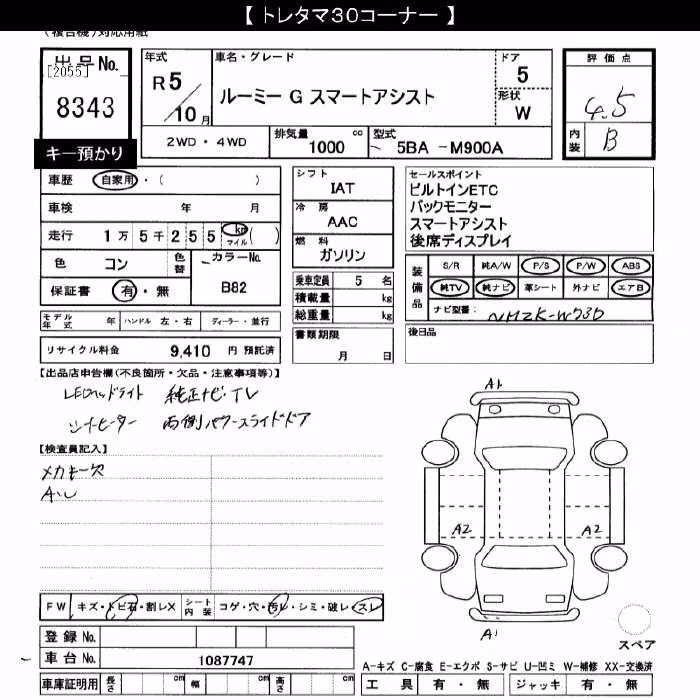 【 トレタマ30コーナー 】
(複合機)対応用紙
出品No.
[2055]
8343
キー預かり
年式 車名・グレード ドア 評価点
R5/10月 ルーミー G スマートアシスト 5
形状
W
4.5
内装 B
2WD・4WD 排気量 1000 cc 型式 5BA -M900A
車歴 自家用・( )
車検 年 月
走行 1万5千255 km マイル ( )
色 コン 色替 カラーNo. B82
保証書 有・無
モデル年式 年 ハンドル 左・右 ディーラー・並行
リサイクル料金 9,410 円 預託済
シフト
IAT
冷房
AAC
燃料
ガソリン
乗車定員 5 名
積載量 kg
総重量 kg
書類期限
月 日
セールスポイント
ビルトインETC
バックモニター
スマートアシスト
後席ディスプレイ
装備品 S/R 純A/W P/S P/W ABS
純TV 純ナビ 革シート 外ナビ エアB
ナビ型番: NMZK-W73D
後日品
【出品店申告欄(不良箇所・欠品・注意事項等)】
LEDヘッドライト 純正ナビ・TV
シートヒーター 両側パワースライドドア
【検査員記入】
メカキー欠
A・U
A1
A2 A2
A1
スペア
FW キズ・トビ石・割レX シート内装 コゲ・穴・汚レ・シミ・破レ・スレ
登録No.
車台No. 1087747
車庫証明用 長さ cm 幅 cm 高さ cm
A-キズ C-腐食 E-エクボ S-サビ U-凹ミ W-補修 XX-交換済
工具 有・無 ジャッキ 有・無